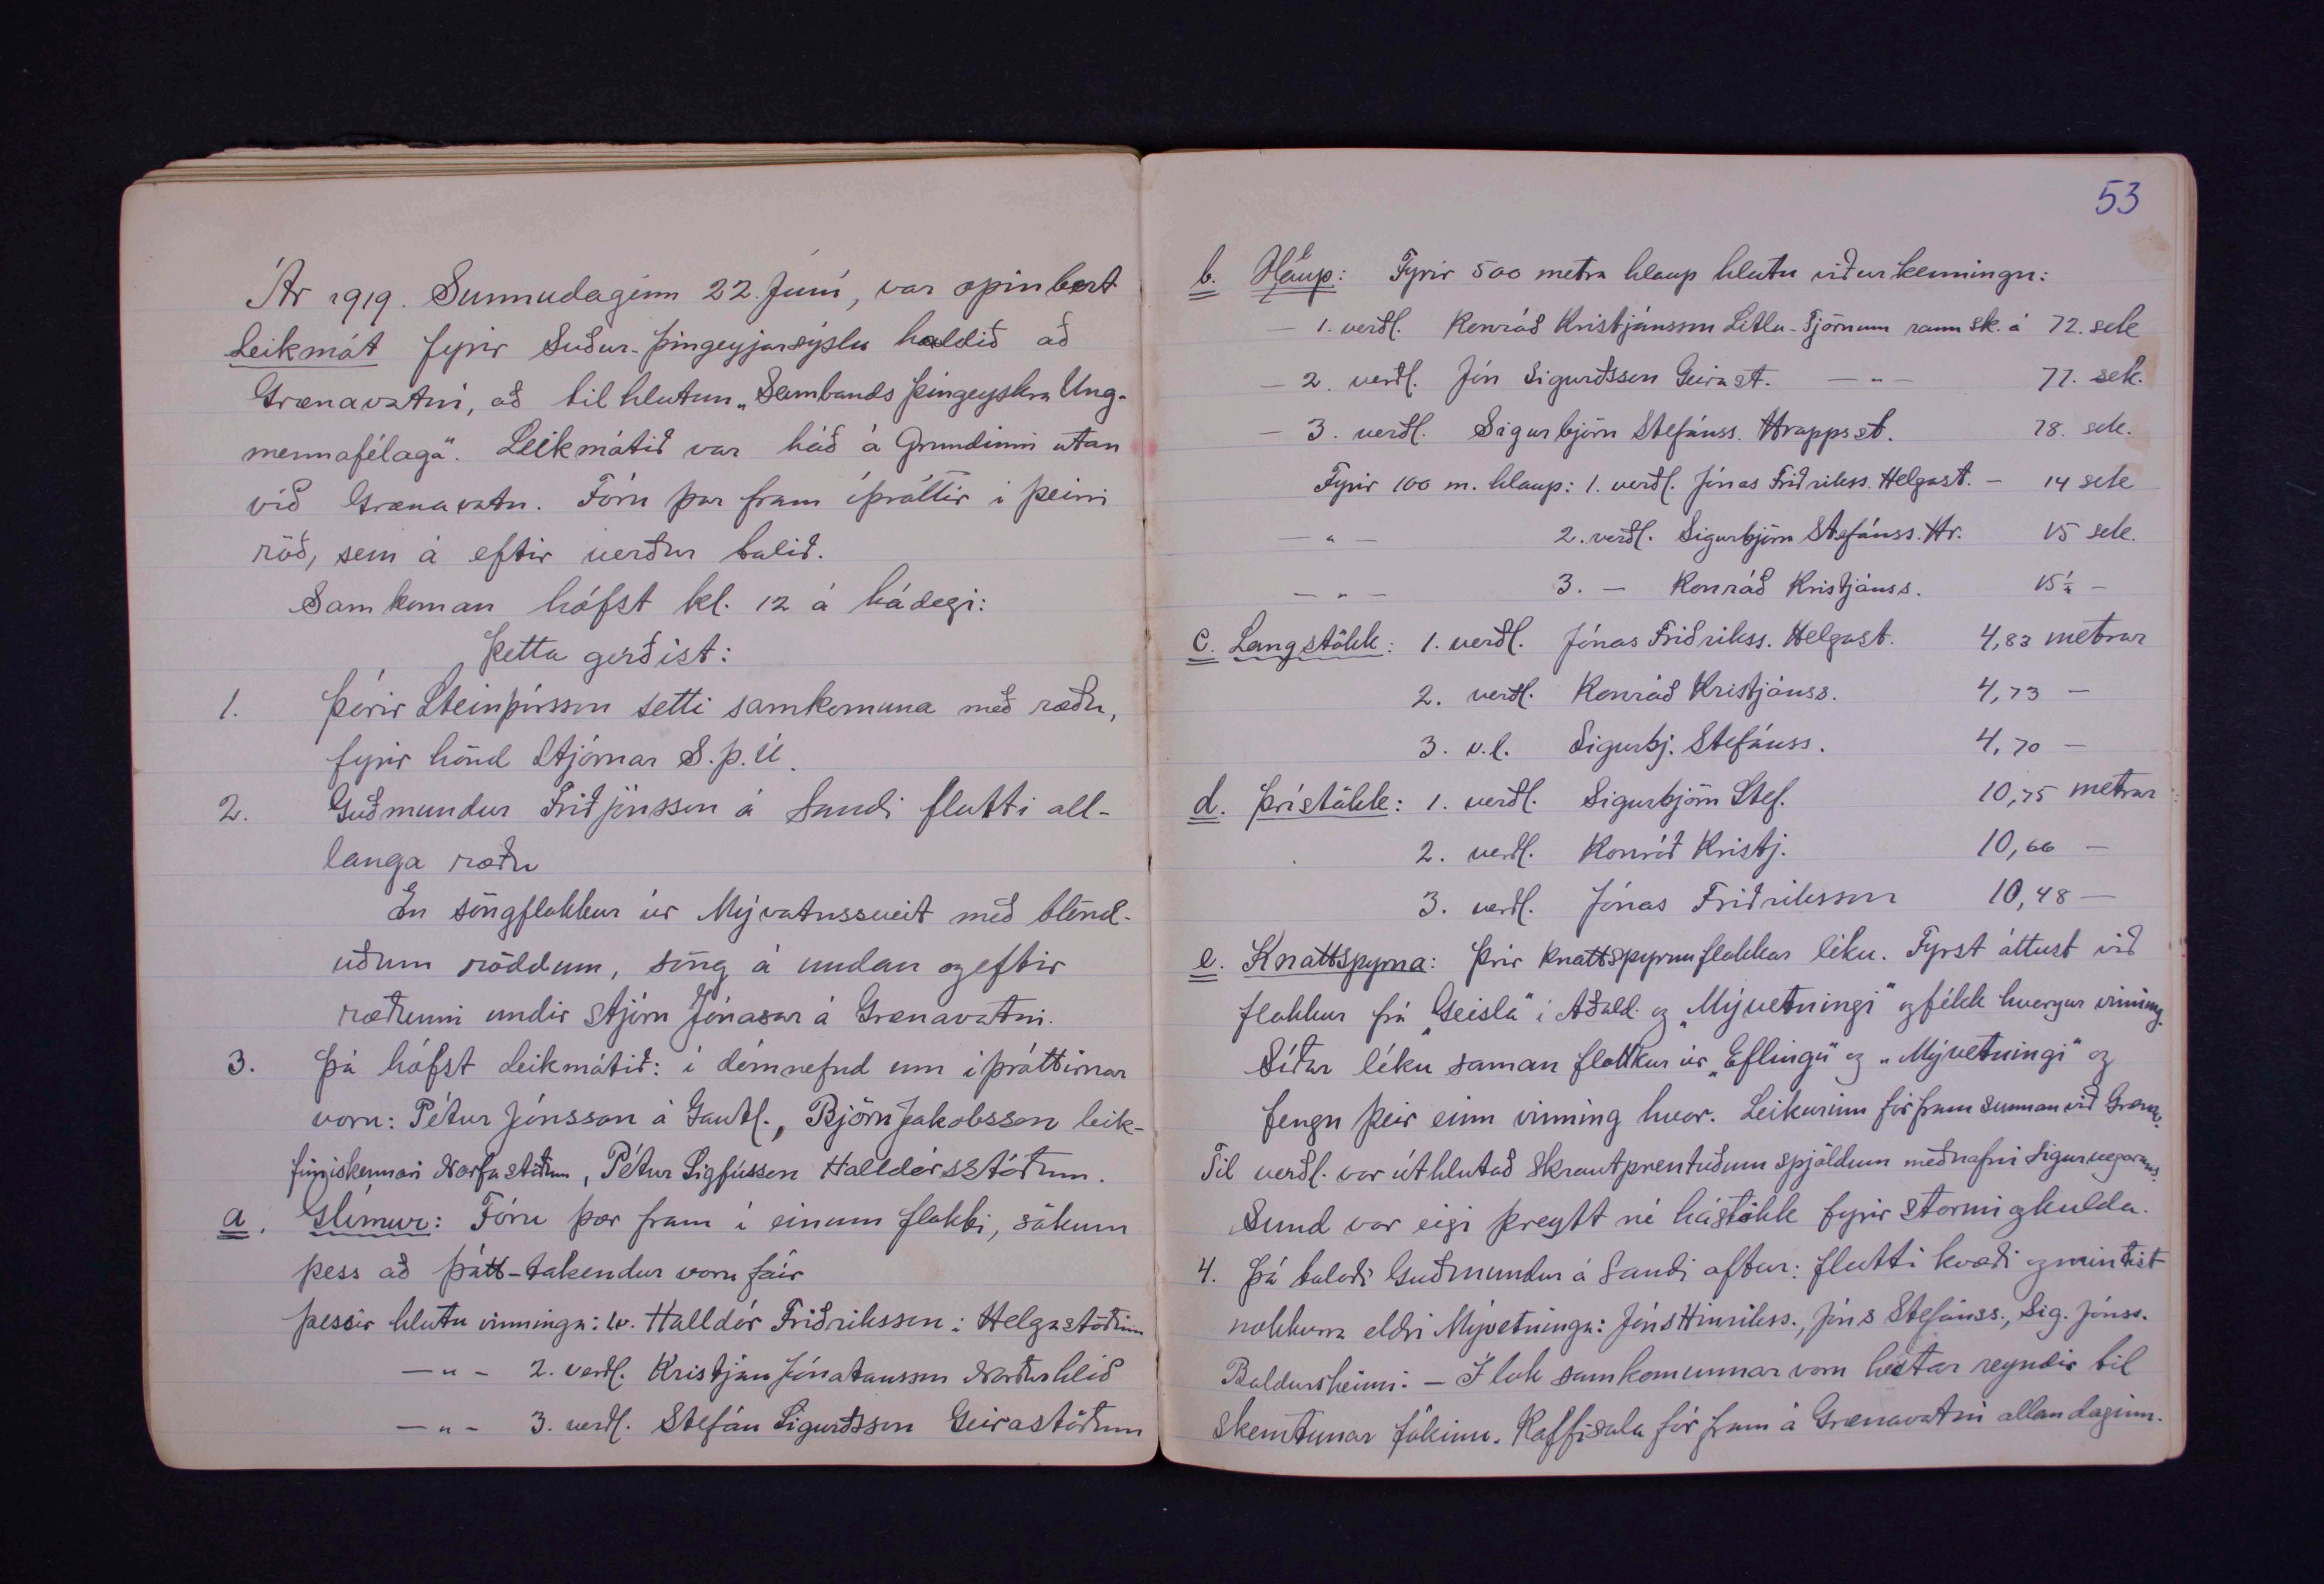 Ár 1919. Sunnudaginn 22. Júní, var opinbert
Leikmót fyrir Suður-Þingeyjarsýslu haldið að
Grænavatni, að tilhlutun „Sambands Þingeyskra Ung-
mennafélaga“. Leikmótið var háð á Grundinni utan
við Grænavatn. Fóru þar fram íþróttir í þeirri
röð, sem á eftir verður talið.
Samkoman hófst kl. 12 á hádegi:
Þetta gerðist:
1. Þórir Steinþórsson setti samkomuna með ræðu,
fyrir hönd Stjórnar S.þ.U.
2. Guðmundur Friðjónsson á Sandi flutti all-
langa ræðu
En söngflokkur úr Mývatnssveit með blönd-
uðum röddum, söng á undan og eftir
ræðunni undir stjórn Jónasar á Grænavatni.
3. Þá hófst leikmótið: í dómnefnd um íþróttirnar
voru: Pétur Jónsson á Gautl., Björn Jakobsson leik-
fimiskennari Narfastöðum, Pétur Sigfússon Halldórsstöðum.
a. Glímur: Fóru þær fram í einum flokki, sökum
þess að þátt-takendur voru fáir
þessir hlutu vinninga: 1v. Halldór Friðriksson: Helgastöðum
—〃— 2. verðl. Kristján Jónatansson Norðurhlíð
—〃— 3. verðl. Stefán Sigurðsson Geirastöðum
53
b. Hlaup: Fyrir 500 metra hlaup hlutu viðurkenningu:
— 1. verðl. Konráð Kristjánsson Litlu-Tjörnum rann sk. á 72. sek
— 2. verðl. Jón Sigurðsson Geirast. —〃— 77. sek.
— 3. verðl. Sigurbjörn Stefánss. Hrappsst. 78. sek.
Fyrir 100 m. hlaup: 1. verðl. Jónas Friðrikss. Helgast. — 14 sek
—〃— 2. verðl. Sigurbjörn Stefánss. Hr. 15 sek.
—〃— 3. — Konráð Kristjánss. 15½ —
c. Langstökk: 1. verðl. Jónas Friðrikss. Helgast. 4,83 metrar
2. verðl. Konráð Kristjánss. 4,73 —
3. v.l. Sigurbj. Stefánss. 4,70 —
d. Þrístökk: 1. verðl. Sigurbjörn Stef. 10,75 metrar
2. verðl. Konráð Kristj. 10,66 —
3. verðl. Jónas Friðriksson 10,48 —
e. Knattspyrna: Þrír knattspyrnuflokkar léku. Fyrst áttust við
flokkur frá „Geisla“ í Aðald. og „Mývetningi“ og fékk hvorgur vinning.
Síðar léku saman flokkur úr „Eflingu“ og „Mývetningi“ og
fengu þeir einn vinning hvor. Leikurinn fór fram sunnan við Grænav.
Til verðl. var úthlutað skrautprentuðum spjöldum með nafni sigurvegarans.
Sund var eigi þreytt né hástökk fyrir stormi og kulda.
4. Þá talaði Guðmundur á Sandi aftur: flutti kvæði og mintist
nokkurra eldri Mývetninga: Jóns Hinrikss., Jóns Stefánss., Sig. Jónss.
Baldursheimi. — Í lok samkomunnar voru hestar reyndir til
skemtunar fólkinu. Kaffisala fór fram á Grænavatni allan daginn.